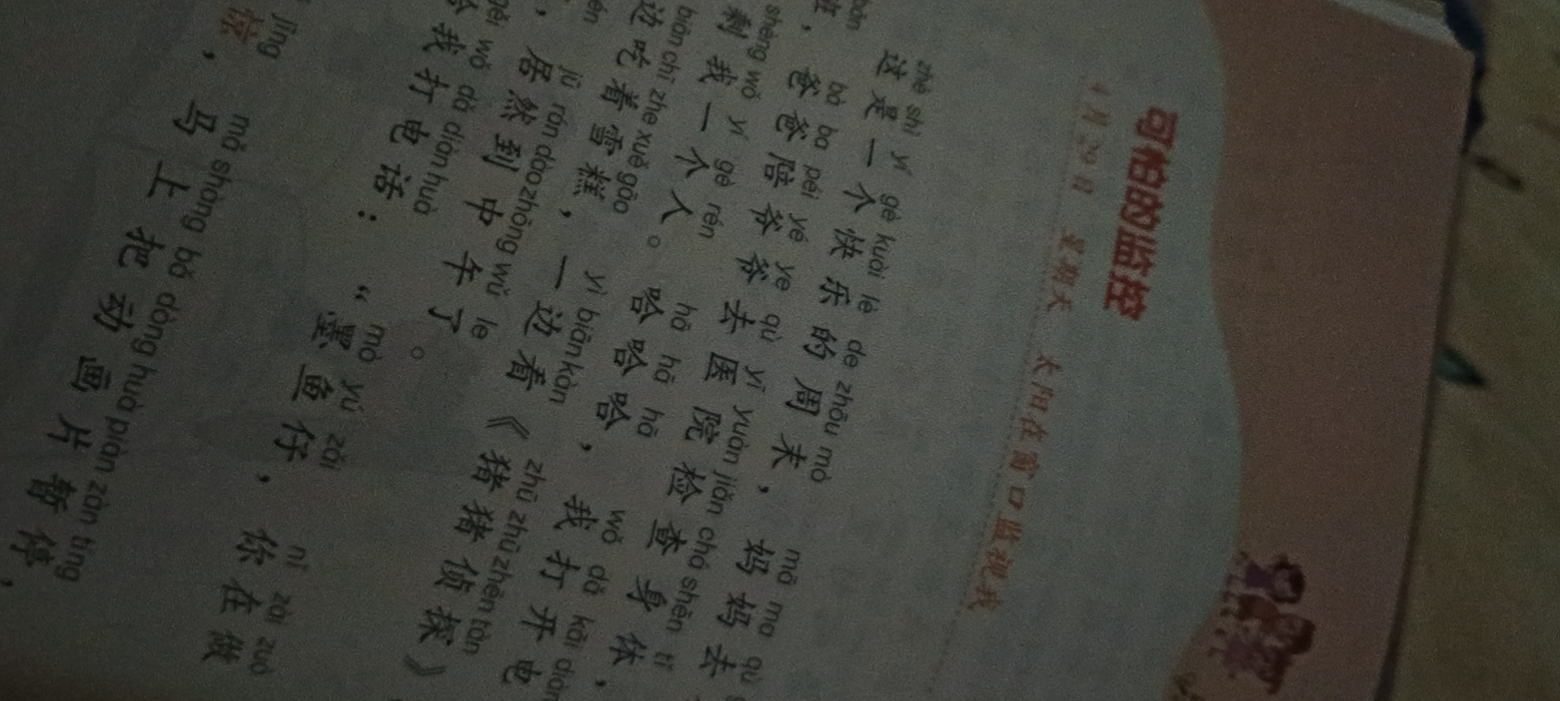 可怕的监控
4月29日 星期天 太阳在窗口监视我
zhè shì yí gè kuài lè de zhōu mò mā ma qù
这是一个快乐的周末，妈妈去
bà ba péi yé ye qù yī yuàn jiǎn chá shēn tǐ
，爸爸陪爷爷去医院检查身体，
shèng wǒ yí gè rén hā hā hā wǒ dǎ kāi diàn
剩我一个人。哈哈哈，我打开电
biān chī zhe xuě gāo yì biān kàn zhū zhū zhēn tàn
边吃着雪糕，一边看《猪猪侦探》
jū rán dào zhōng wǔ le
，居然到中午了。
gěi wǒ dǎ diàn huà mò yú zǎi nǐ zài zuò
给我打电话：“墨鱼仔，你在做
jīng mǎ shàng bǎ dòng huà piàn zàn tíng
惊，马上把动画片暂停，